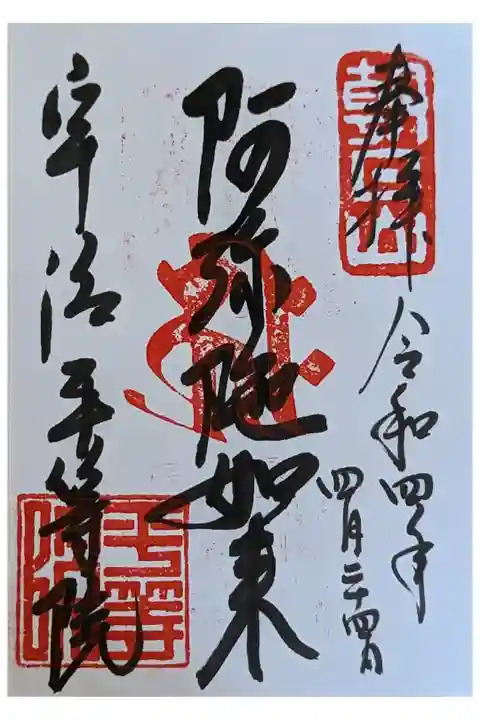 奉拝
令和四年
四月二十四日
阿弥陀如来
宇治平等院
朝日山
平等院印